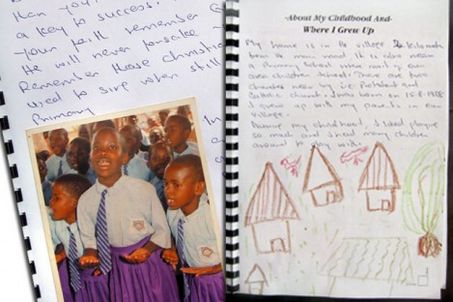 than you!
a key to success.
your faith remember G
He will never forsake
Remember those Christia
used to sing when still
Primary
-About My Childhood And-
Where I Grew Up
My home is in the village 2 kilometers
from the main road. It is also near
a Primary School and
own children School. There are two
churches near by i.e. Protestant and
Catholic church. I was born on 15-8-1988
I grew up with my parents in our
village.
During my childhood, I liked
so much and I had many children
around to play with.